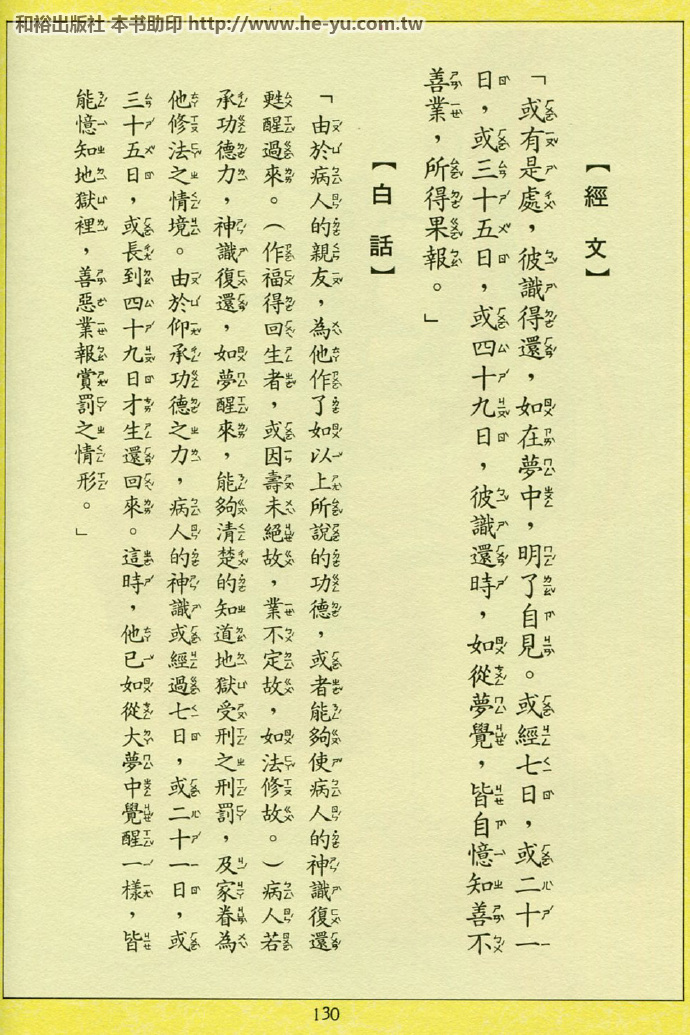 和裕出版社 本书助印 http://www.he-yu.com.tw
【經文】
「或有是處，彼識得還，如在夢中，明了自見。或經七日，或二十一
日，或三十五日，或四十九日，彼識還時，如從夢覺，皆自憶知善不
善業，所得果報。」
【白話】
「由於病人的親友，為他作了如以上所說的功德，或者能夠使病人的神識復還
甦醒過來。（作福得回生者，或因壽未絕故，業不定故，如法修故。）病人若
承功德力，神識復還，如夢醒來，能夠清楚的知道地獄受刑之刑罰，及家眷為
他修法之情境。由於仰承功德之力，病人的神識或經過七日，或二十一日，或
三十五日，或長到四十九日才生還回來。這時，他已如從大夢中覺醒一樣，皆
能憶知地獄裡，善惡業報賞罰之情形。」
130